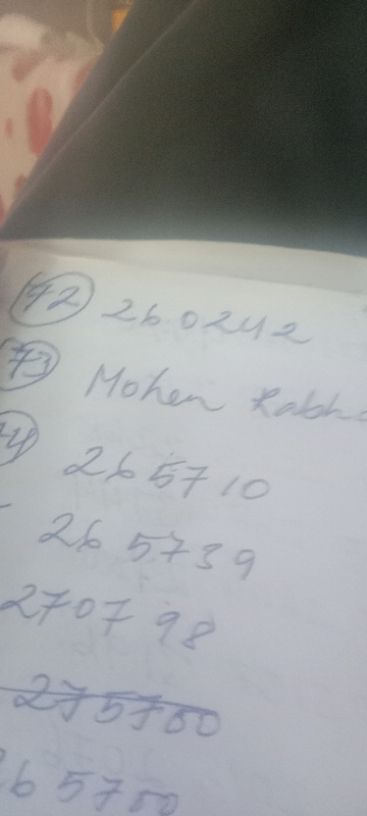 72 260242
73 Mohen Rabh
74 265710
265739
270798
275700
265700